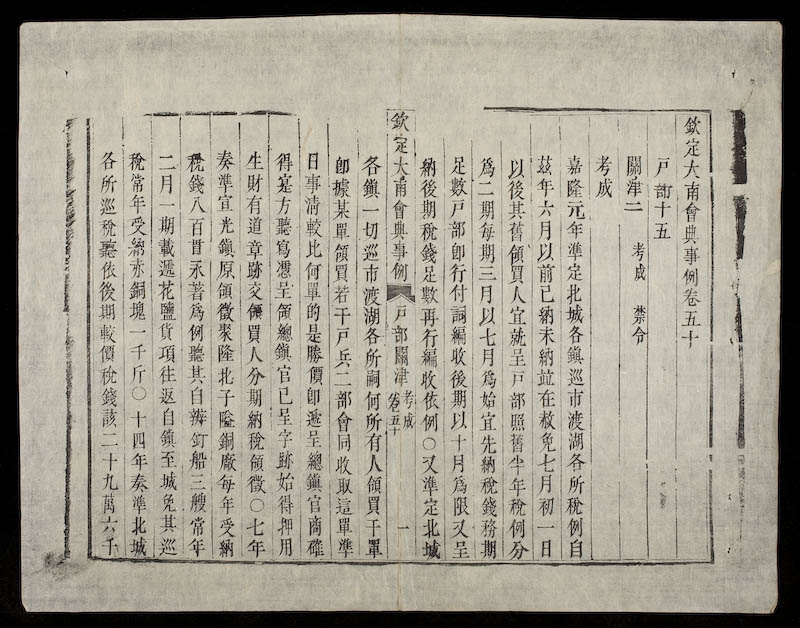 欽定大南會典事例卷五十
戶部十五
關津二 考成 禁令
考成
嘉隆元年準定北城各鎮巡市渡湖各所稅例自
茲年六月以前已納未納並在赦免七月初一日
以後其舊領買人宜就呈戶部照舊半年稅例分
爲二期每期三月以七月爲始宜先納稅錢務期
足數戶部卽行付詞編收後期以十月爲限又呈
納後期稅錢足數再行編收依例○又準定北城
欽定大南會典事例 戶部關津 考成 卷五十 一
各鎮一切巡市渡湖各所嗣何所有人領買干單
卽據某單領買若干戶兵二部會同收取這單準
日事清較比何單的是勝價卽遞呈總鎮官商確
得寔方聽寫憑呈領總鎮官已呈字跡始得押用
生財有道章跡交領買人分期納稅領徵○七年
奏準宜光鎮原領徵聚隆北子隘銅廠每年受納
稅錢八百貫永著爲例聽其自辨釘船三艘常年
二月一期載遞花鹽貨項往返自鎮至城免其巡
稅常年受納赤銅塊一千斤○十四年奏準北城
各所巡稅聽依後期較價稅錢該二十九萬六千